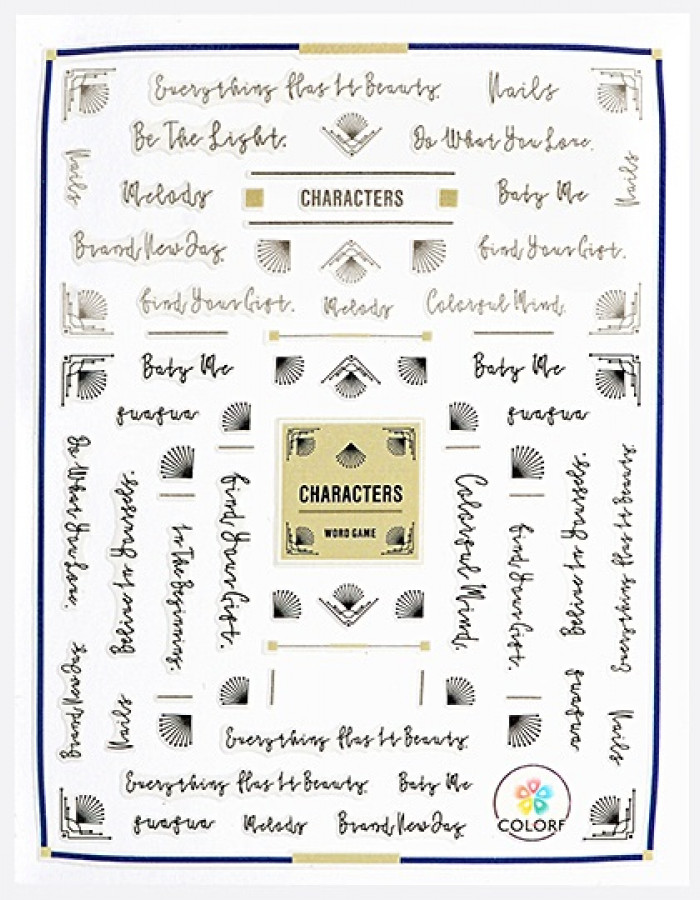 Everything Has It Beauty. Nails
Be The Light. Do What You Love.
Nails Nails
Melody CHARACTERS Baby Me
Brand New Day Find Your Gift.
Find Your Gift. Melody Colorful Mind.
Baby Me Baby Me
guagua guagua
Do What You Love.
Believe In Yourself.
In The Beginning.
Find Your Gift.
CHARACTERS
WORD GAME
Colorful Mind.
Find Your Gift.
Believe In Yourself.
Everything Has It Beauty.
Brand New Day
Nails
guagua
Nails
Everything Has It Beauty.
Everything Has It Beauty. Baby Me
guagua Melody Brand New Day
COLORF